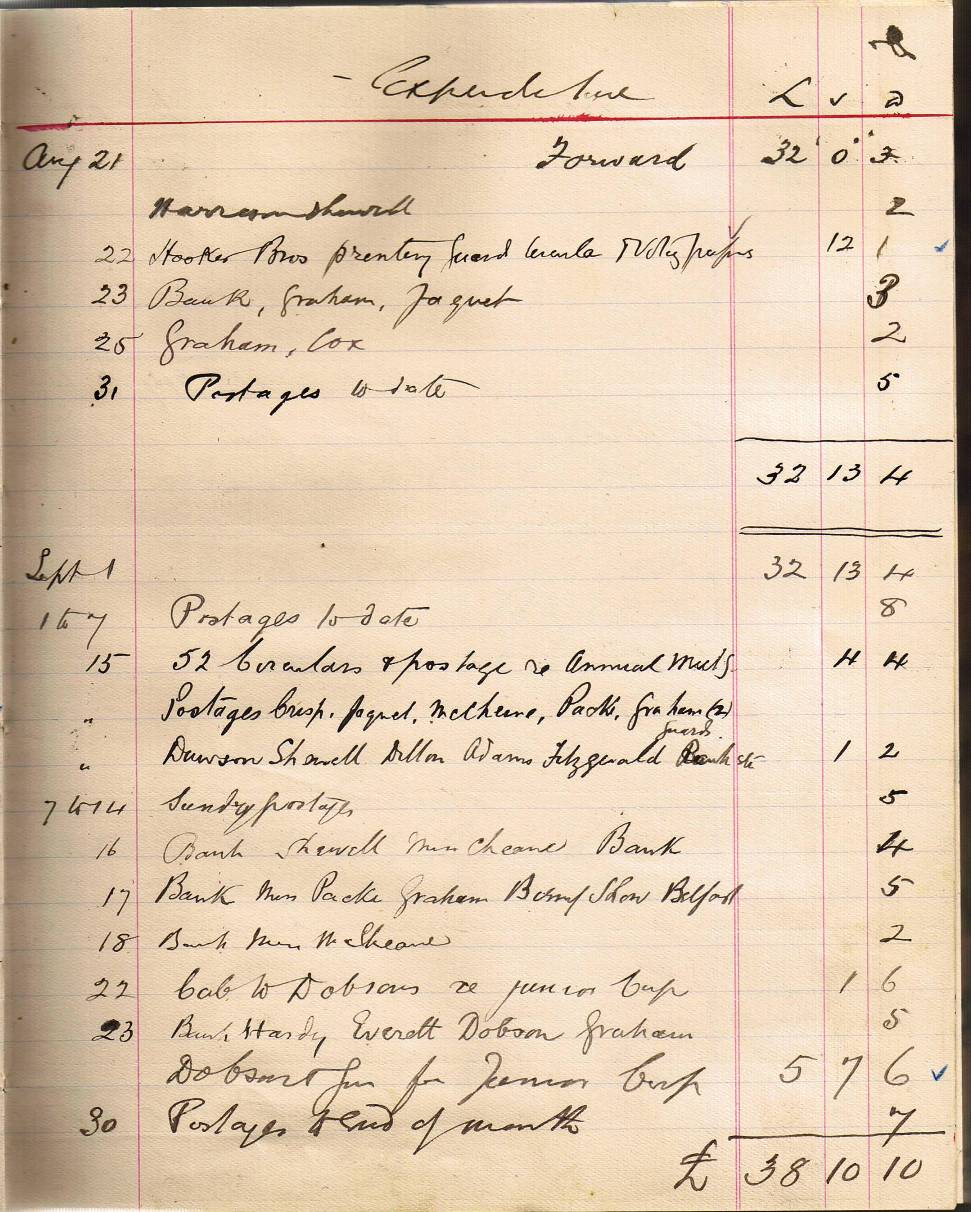 Expenditure
£ s d
Aug 21 Forward 32 0 3
Harrison Shewell 2
22 Hooker Bros printing Guard 12 1
23 Bank, Graham, Jaquet 3
25 Graham, Cox 2
31 Postages to date 5
32 13 4
Sept 1 32 13 4
1 to 7 Postages to date 8
15 52 Circulars & postage re Annual Meetg 4 4
" Postages Crisp, Jaquet, McCheane, Pack, Graham (2)
Guard
" Dawson Shewell Dillon Adams Fitzgerald Bank etc 1 2
7 to 14 Sundry postages 5
16 Bank Shewell Miss Cheane Bank 4
17 Bank Mrs Packe Graham Show Belfast 5
18 Bank McCheane 2
22 Cab to Dobsons re junior Cup 1 6
23 Bank Hardy Everett Dobson Graham 5
Dobson for Junior Cup 5 7 6
30 Postages to end of month 7
£ 38 10 10